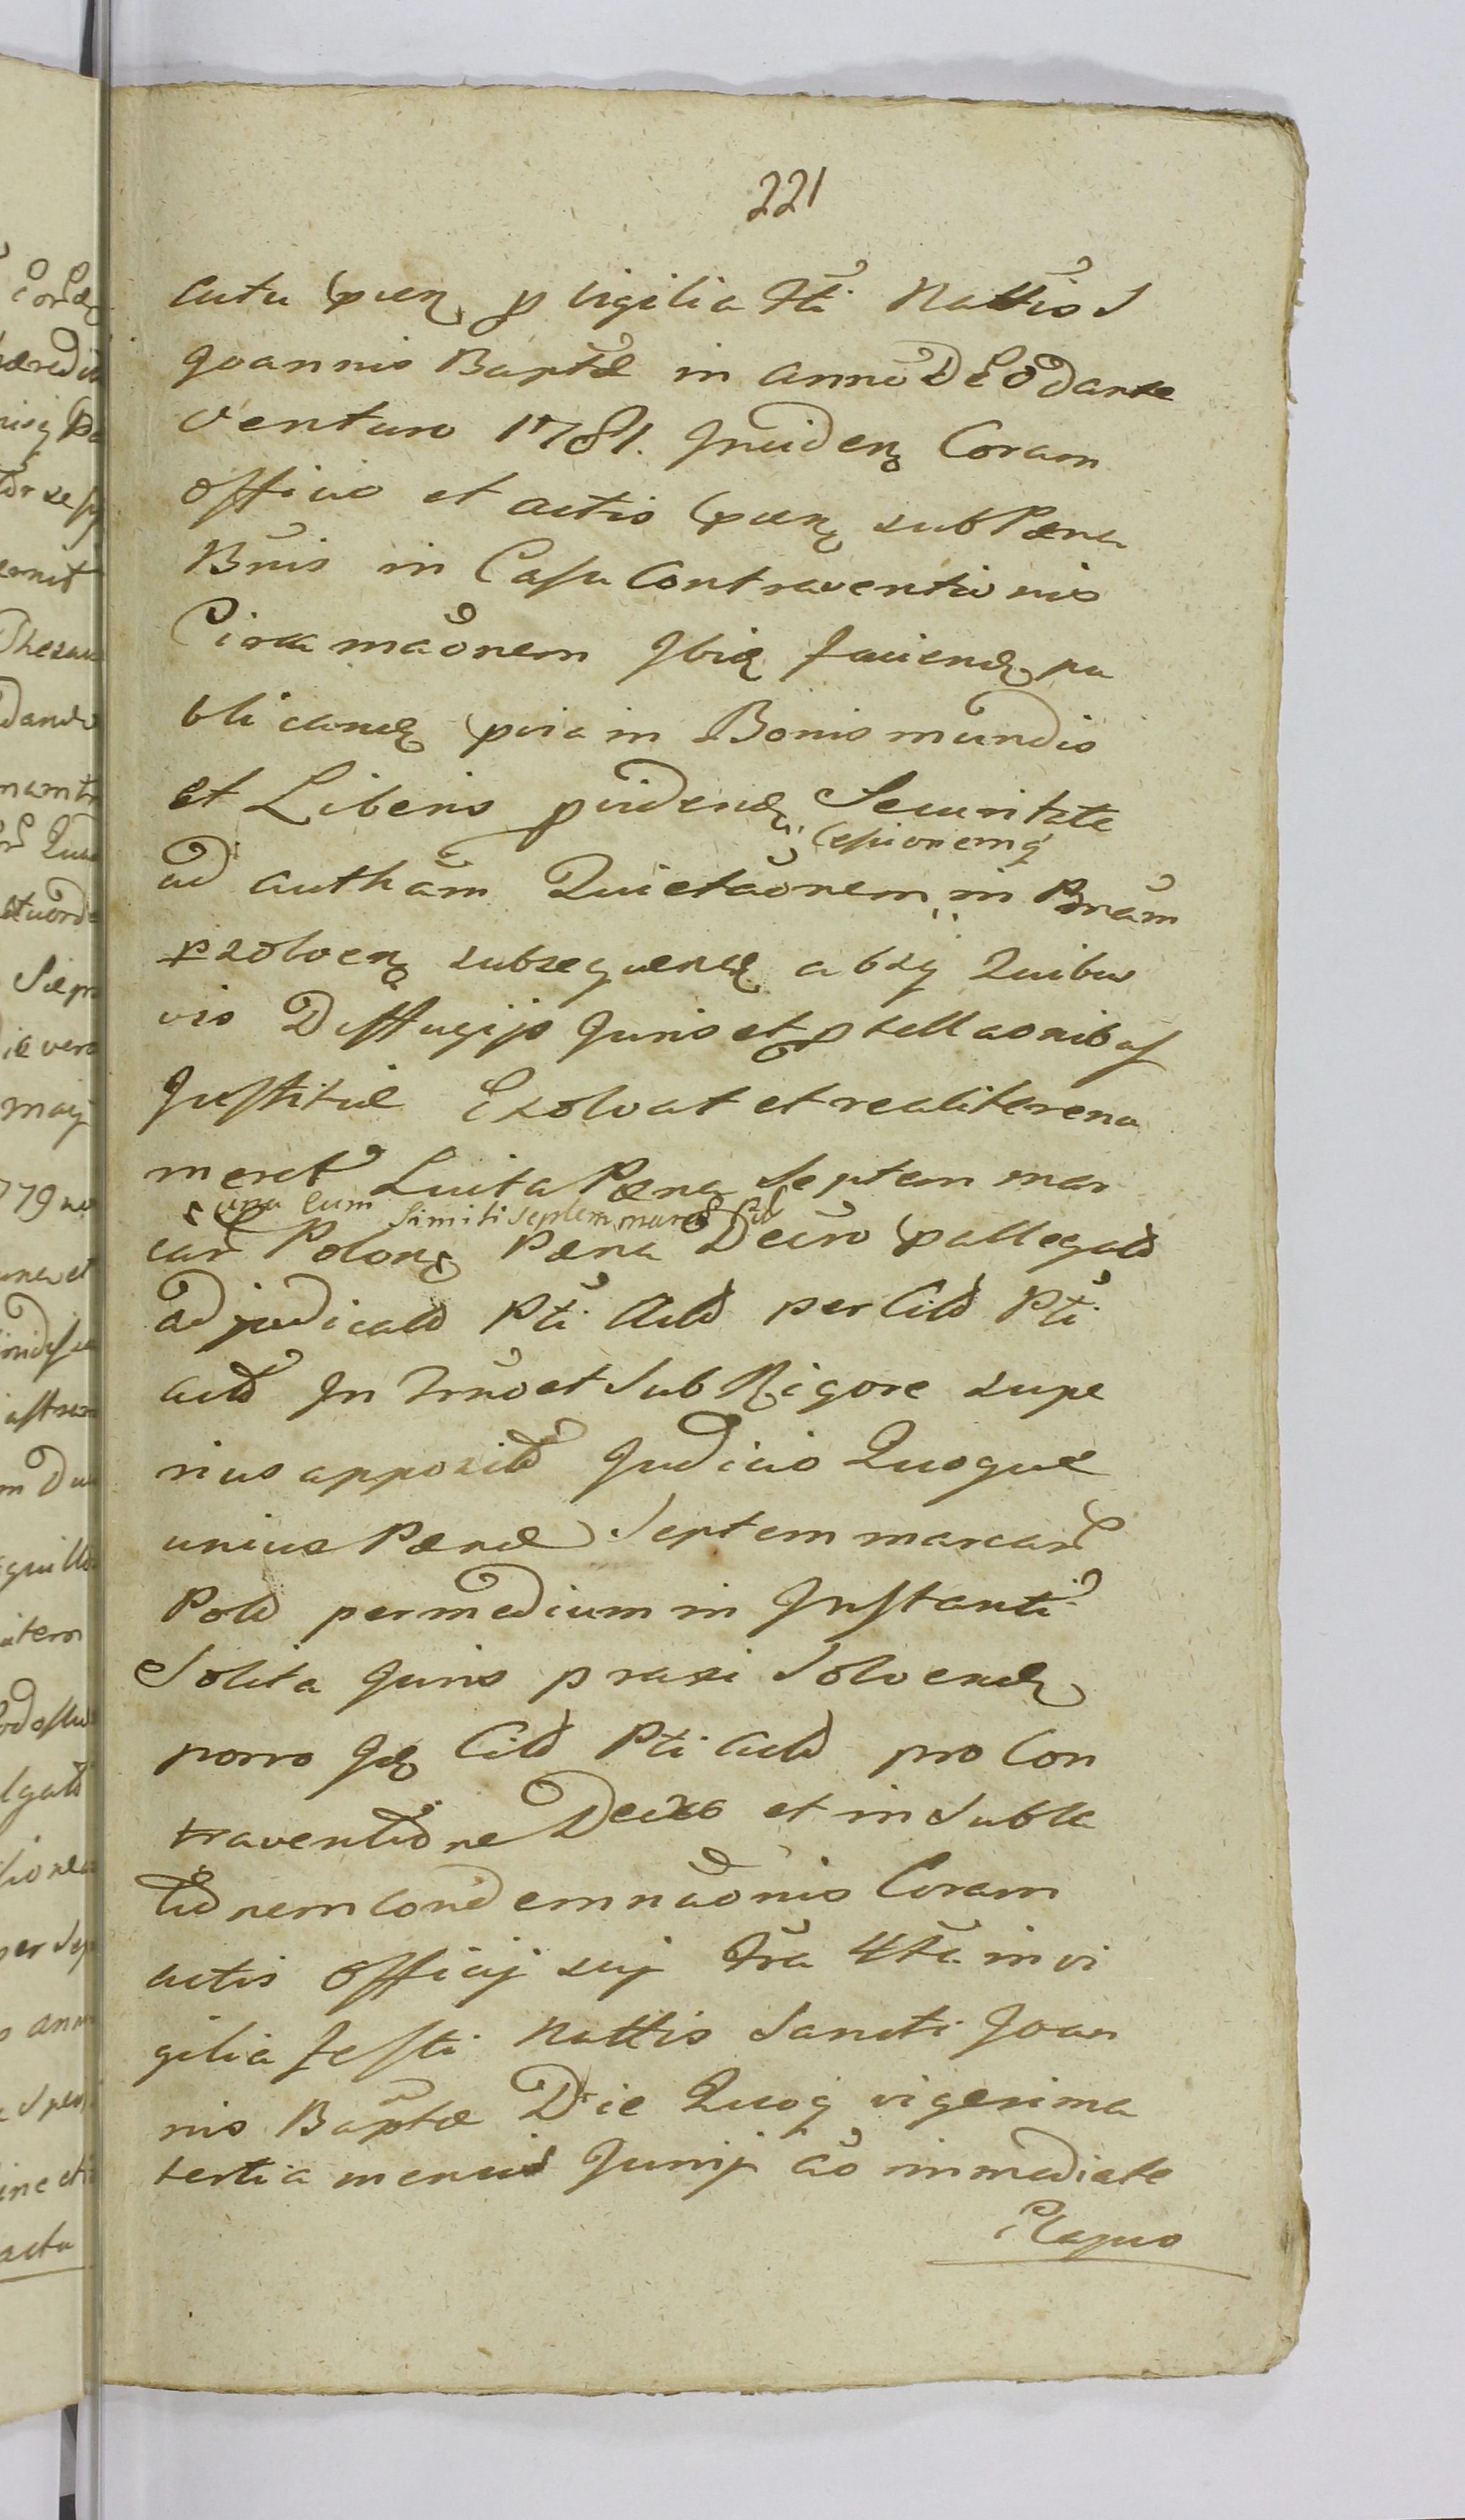 221
acta puen p vigilia Fti Nattis S
Joannis Baptæ in anno DEO dante
Venturo 1781. Inciden Coram
officio et actis puen sub Pæna
Bnis in Casu Contraventio nis
Circa maõnem Ibiq faciend pu
blicand pvia in Bonis mundis
et Liberis pvidend Securitate
Cessionemq
ad autham Quietaõnem in Prnam
psolven subsequend absq Quibus
vis Diffugijs Juris et ptellaonibus
Justitiæ Exolvat et realiter enu
meret Luita Pæna Septem mar
una cum simili septem marcar Pol
car Polon Pæna Decro pallegato
adjudicato Pti Acto per Cito Pti
acto In Trno et Sub Rigore supe
rius apposito Judicio Quoque
unius Pænæ Septem marcar
Polo per medium in Instanti
Solita Juris praxi Solvend
porro Id Cito Pti Acto pro Con
traventione Decro et in Subla
tionem condemnaõnis Coram
actis officij sui Fra 4ta in vi
gilia festi Nattis Sancti Joan
nis Baptæ Die Quoq vigesima
tertia mensis Junij aõ immediate
Elapso